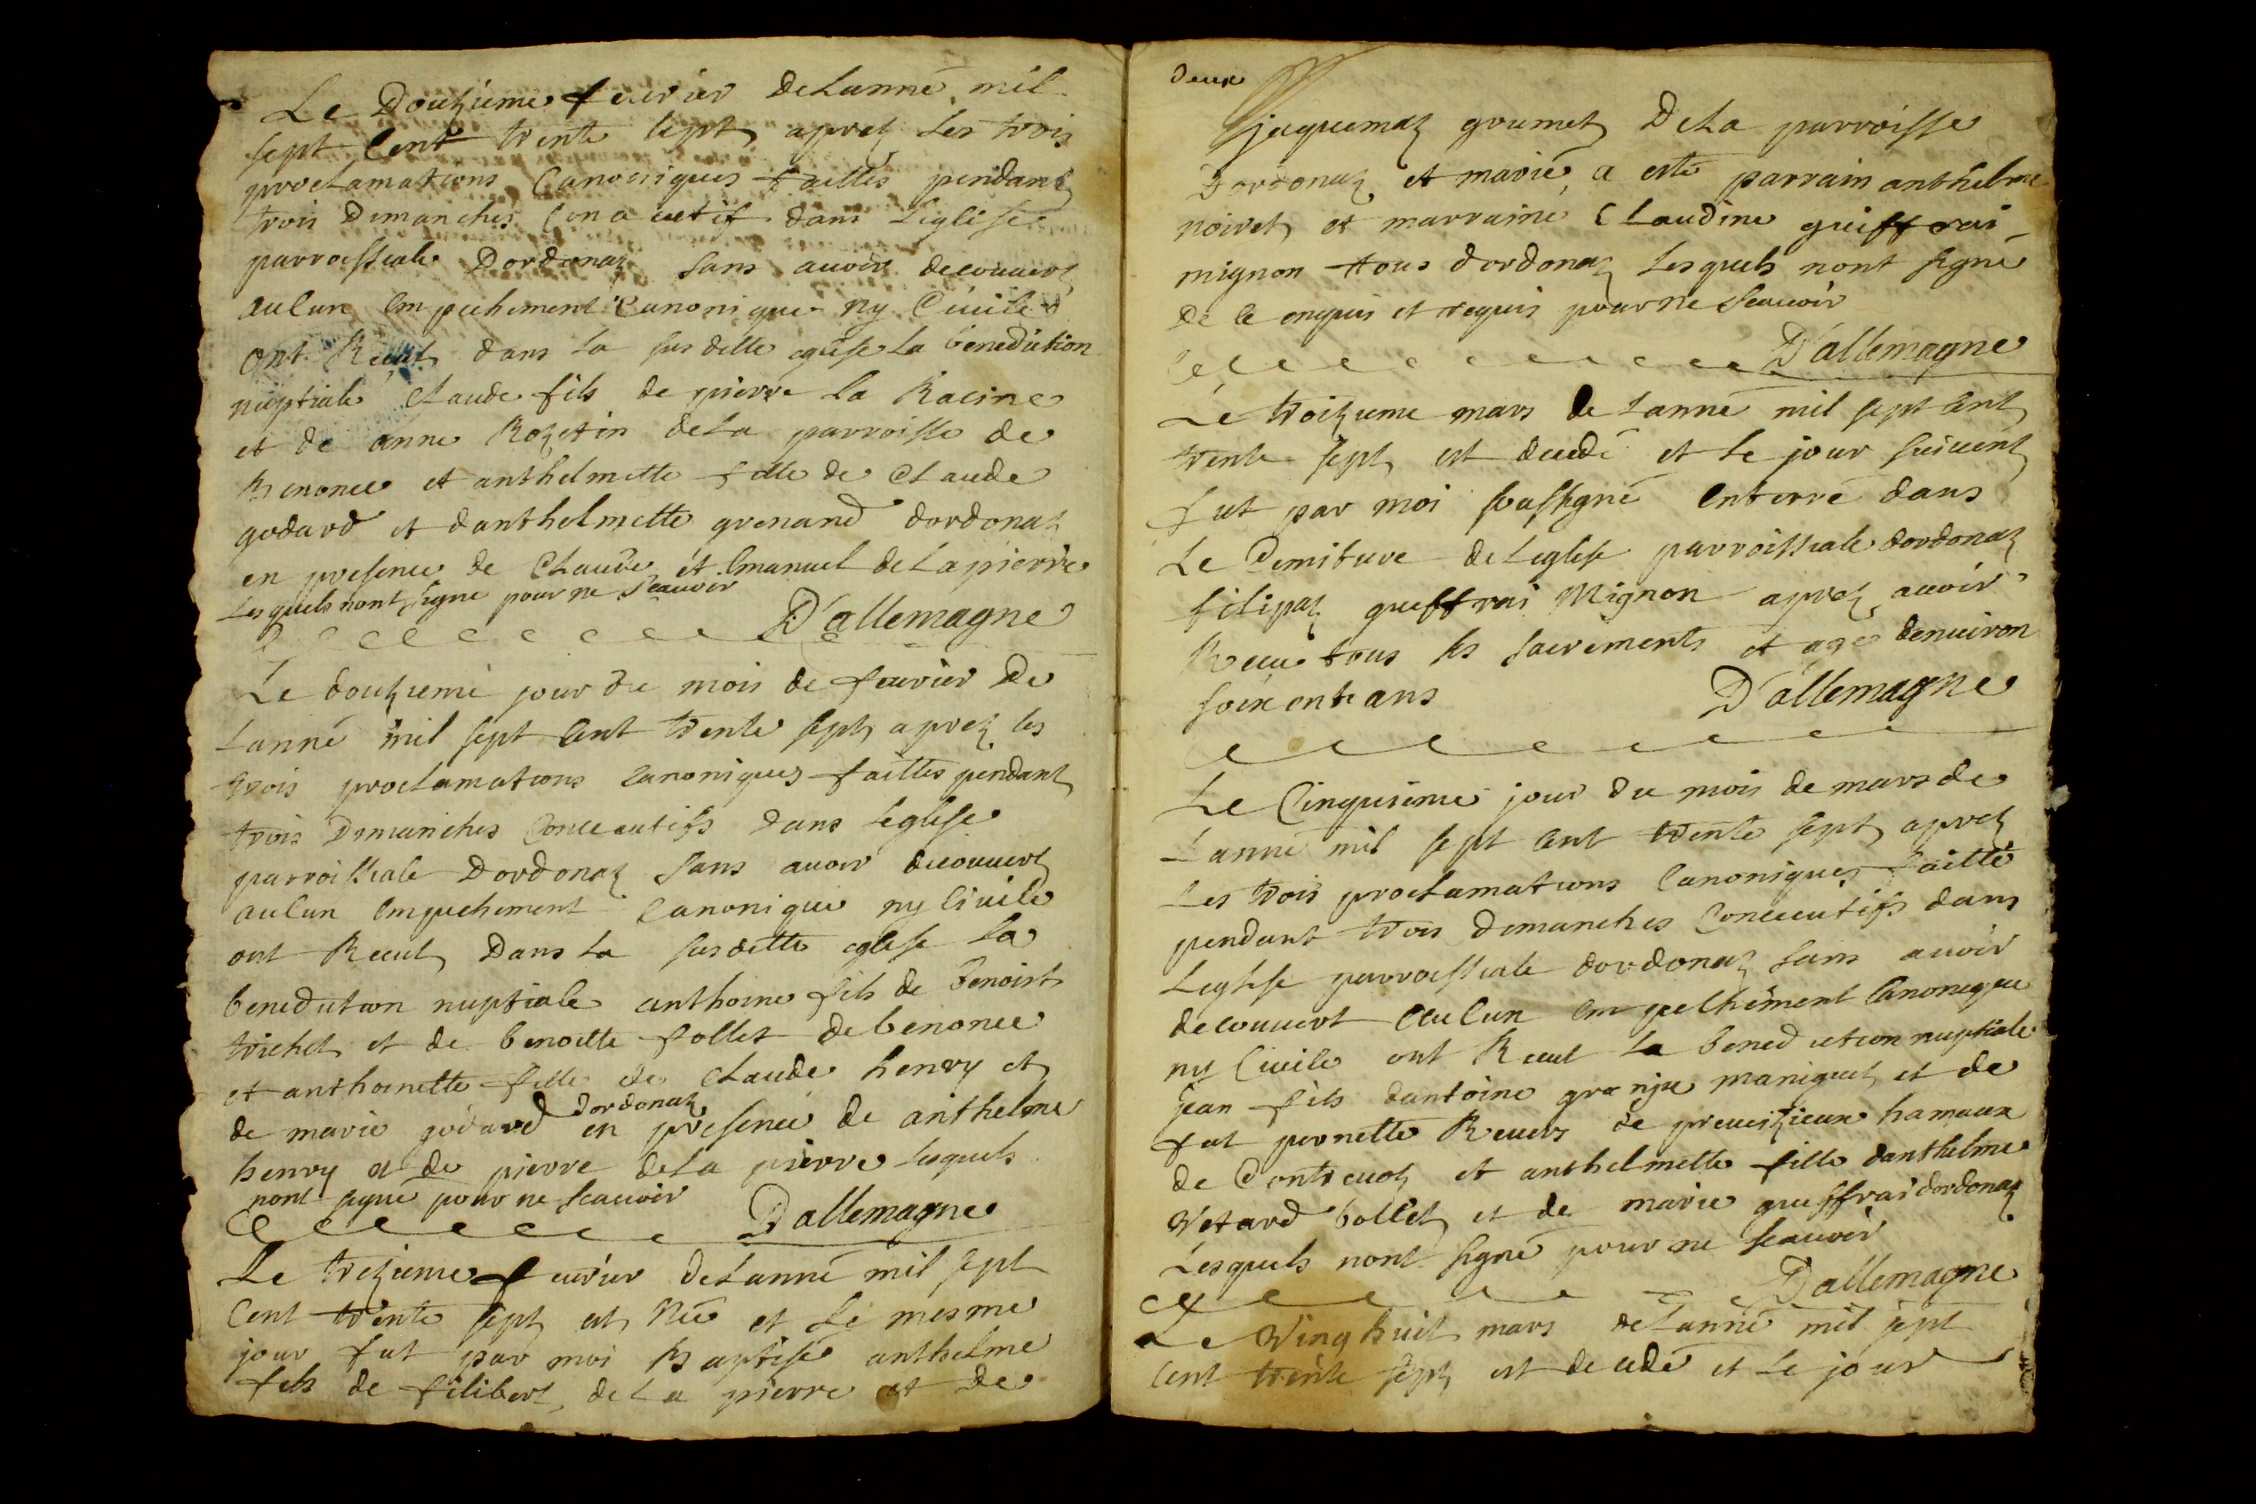 Le Douzieme feuvrier de Lannè mil
sept Cent trente sept aprez les trois
proclamations Canoniques faittes pendant
trois Dimanches Consecutif dans L'eglise
parroissiale Dordonaz sans auoir decouuert
aulcun Empechement Canonique ny Ciuile
ont Recut dans la susditte eglise la benediction
nuptiale Claude fils de pierre la Racine
et de anne Rozetin de la parroisse de
Benonce et anthelmette fille de Claude
godard et danthelmette grenand dordonaz
en presence de Claude et Emanuel de La pierre
Lesquels nont signe pour ne Scauoir
D'allemagne
Le douzieme jour du mois de feurier De
Lannè mil sept Cent trente sept aprez les
trois proclamations Canoniques faittes pendant
trois Dimanches Concecutifs dans Leglise
parroissiale Dordonaz sans auoir decouuert
aulcun Empechement Canonique ny Ciuile
ont Recut Dans la susditte eglise la
benediction nuptiale anthoine fils de benoist
trichet et de benoitte follet de benonce
et anthoinette fille de Claude henry et
de marie godard dordonaz en presence de anthelme
henry et de pierre de la pierre lesquels
nont signé pour ne scauoir D'allemagne
Le trezieme feurier de Lannè mil sept
Cent trente sept est Née et le mesme
jour fut par moi Baptisé anthelme
fils de filibert de La pierre et de
deux
jaquemaz grumet De La parroisse
Dordonaz et marié, a esté parrain anthelme
noiret et marraine Claudine guiffrai
mignon tous dordonaz Lesquels nont signè
de ce enquis et requis pour ne scauoir
D'allemagne
Le troizieme mars de Lannè mil sept Cent
trente sept est decedè et le jour suiuent
fut par moi soussignè Enterrè dans
Le Cemiture de Leglise parroissiale dordonaz
filipaz gueffrai Mignon aprez auoir
Receu tous les sacrements et agé denuiron
soixente ans D'allemagne
Le Cinquieme jour du mois de mars de
Lannè mil sept Cent trente sept aprez
Les trois proclamations Canoniques faitte
pendant trois Dimanches Concecutifs dans
Leglise parroissiale dordonaz sans auoir
decouuert aulcun Empelchement Canonique
ny Ciuile ont Recut la benediction nuptiale
jean fils dantoine granju maniquet et de
fut pernette Reuers de preueizieux hamaux
de Contreuoz et anthelmette fille danthelme
Vetard bollet et de marie gueffrai dordonaz
Lesquels nont signé pour ne scauoir
D'allemagne
Le Ving huit mars de Lannè mil sept
Cent trente sept est decedè et le jour